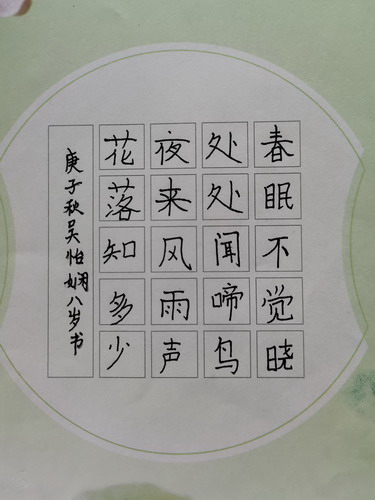 春眠不觉晓
处处闻啼鸟
夜来风雨声
花落知多少
庚子秋吴怡娴八岁书